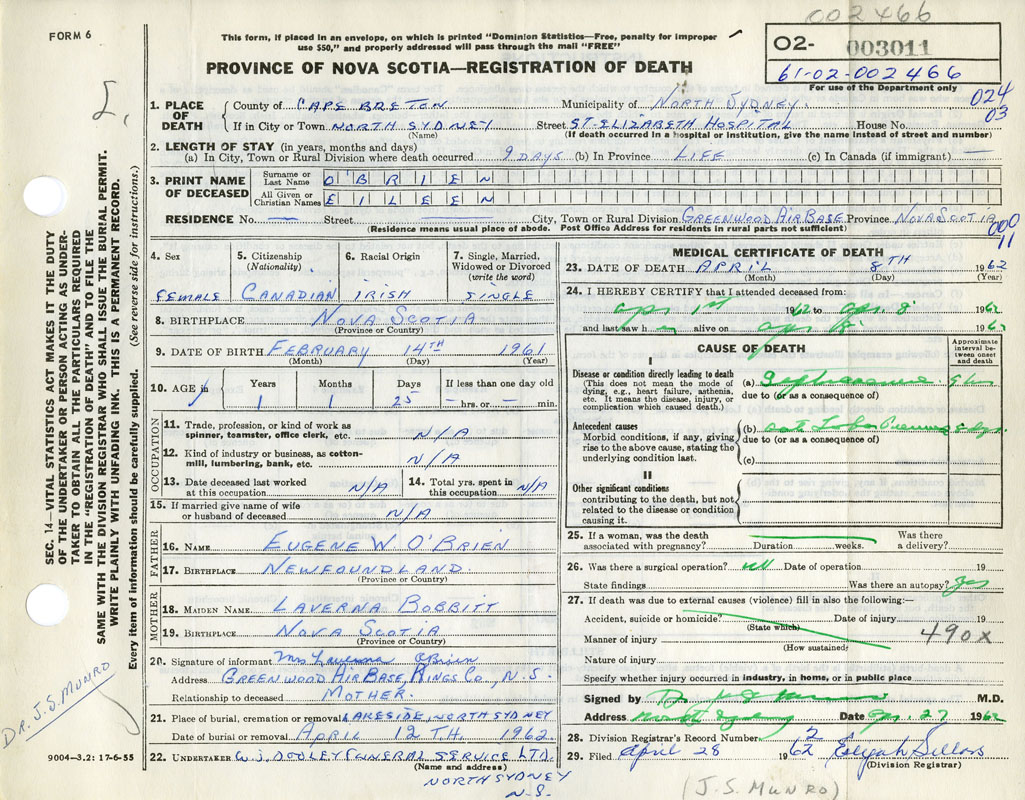 002466
FORM 6
This form, if placed in an envelope, on which is printed "Dominion Statistics—Free, penalty for improper
use $50," and properly addressed will pass through the mail "FREE"
02- 003011
61-02-002466
For use of the Department only
PROVINCE OF NOVA SCOTIA—REGISTRATION OF DEATH
024
03
1. PLACE OF DEATH County of CAPE BRETON Municipality of NORTH SYDNEY.
If in City or Town NORTH SYDNEY Street ST. ELIZABETH HOSPITAL House No.
(Name) (If death occurred in a hospital or institution, give the name instead of street and number)
2. LENGTH OF STAY (in years, months and days)
(a) In City, Town or Rural Division where death occurred 9 DAYS (b) In Province LIFE (c) In Canada (if immigrant) —
3. PRINT NAME OF DECEASED Surname or Last Name O'BRIEN
All Given or Christian Names EILEEN
RESIDENCE No. — Street — City, Town or Rural Division GREENWOOD AIR BASE Province NOVA SCOTIA
(Residence means usual place of abode. Post Office Address for residents in rural parts not sufficient)
000
11
4. Sex FEMALE
5. Citizenship (Nationality) CANADIAN
6. Racial Origin IRISH
7. Single, Married, Widowed or Divorced (write the word) SINGLE
8. BIRTHPLACE NOVA SCOTIA
(Province or Country)
9. DATE OF BIRTH FEBRUARY 14TH 1961
(Month) (Day) (Year)
10. AGE Years Months Days If less than one day old
1 1 25 — hrs. or — min.
OCCUPATION
11. Trade, profession, or kind of work as
spinner, teamster, office clerk, etc. N/A
12. Kind of industry or business, as cotton-
mill, lumbering, bank, etc. N/A
13. Date deceased last worked at this occupation N/A 14. Total yrs. spent in this occupation N/A
15. If married give name of wife
or husband of deceased N/A
FATHER
16. NAME EUGENE W. O'BRIEN
17. BIRTHPLACE NEWFOUNDLAND.
(Province or Country)
MOTHER
18. MAIDEN NAME LAVERNA BOBBITT
19. BIRTHPLACE NOVA SCOTIA
(Province or Country)
20. Signature of informant Mrs Laverna O'Brien
Address GREENWOOD AIR BASE, KINGS CO., N.S.
Relationship to deceased MOTHER.
21. Place of burial, cremation or removal LAKESIDE, NORTH SYDNEY
Date of burial or removal APRIL 12TH. 1962
22. UNDERTAKER W. J. DOOLEY FUNERAL SERVICE LTD.
(Name and address)
NORTH SYDNEY
N.S.
MEDICAL CERTIFICATE OF DEATH
23. DATE OF DEATH APRIL 8TH 1962
(Month) (Day) (Year)
24. I HEREBY CERTIFY that I attended deceased from:
apr 1st 1962 to apr. 8 1962
and last saw h er alive on apr 8 1962
CAUSE OF DEATH
Approximate interval between onset and death
I
Disease or condition directly leading to death
(This does not mean the mode of
dying, e.g., heart failure, asthenia,
etc. It means the disease, injury, or
complication which caused death.)
(a)
due to (or as a consequence of)
Antecedent causes
Morbid conditions, if any, giving
rise to the above cause, stating the
underlying condition last.
(b) Lobar Pneumonia
due to (or as a consequence of)
(c)
II
Other significant conditions
contributing to the death, but not
related to the disease or condition
causing it.
25. If a woman, was the death Was there
associated with pregnancy? Duration weeks. a delivery?
26. Was there a surgical operation? Date of operation 19
State findings Was there an autopsy? Yes
27. If death was due to external causes (violence) fill in also the following:—
Accident, suicide or homicide? Date of injury 19
(State which)
Manner of injury 490X
(How sustained)
Nature of injury
Specify whether injury occurred in industry, in home, or in public place
Signed by M.D.
Address North Sydney Date Apr. 27 1962
28. Division Registrar's Record Number 2
29. Filed April 28 1962 Elijah Sellars
(Division Registrar)
(J. S. MUNRO)
SEC. 14—VITAL STATISTICS ACT MAKES IT THE DUTY
OF THE UNDERTAKER OR PERSON ACTING AS UNDER-
TAKER TO OBTAIN ALL THE PARTICULARS REQUIRED
IN THE "REGISTRATION OF DEATH" AND TO FILE THE
SAME WITH THE DIVISION REGISTRAR WHO SHALL ISSUE THE BURIAL PERMIT.
WRITE PLAINLY WITH UNFADING INK. THIS IS A PERMANENT RECORD.
Every item of information should be carefully supplied. (See reverse side for instructions.)
DR. J. S. MUNRO
9004—3.2: 17-6-55